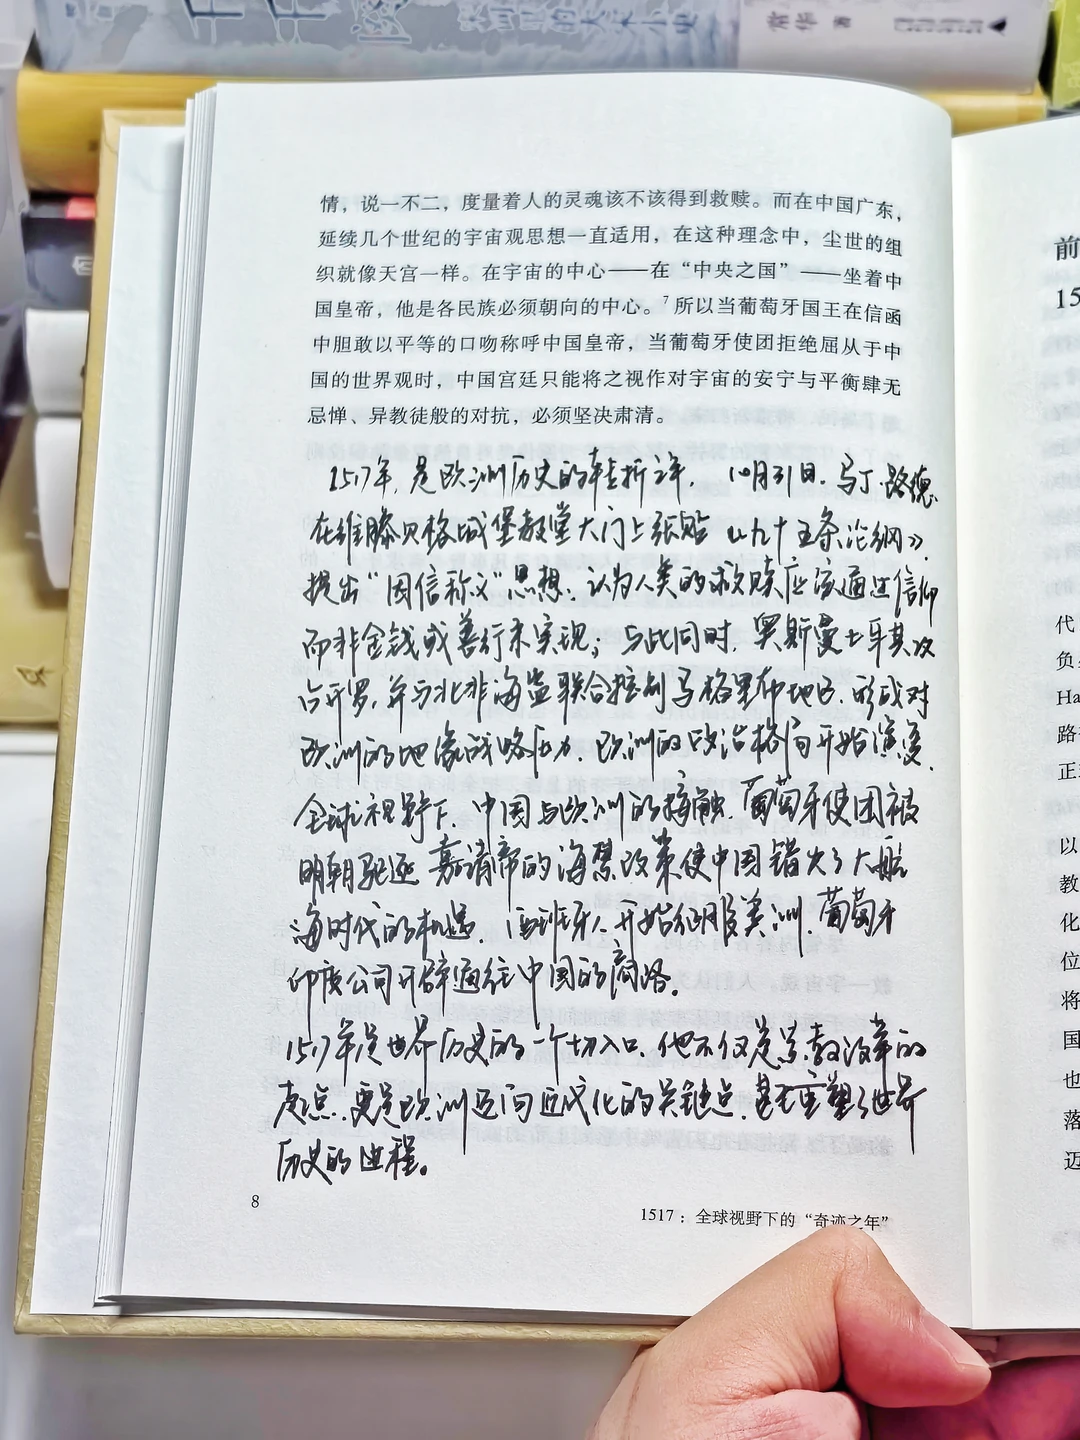 常华 著
情，说一不二，度量着人的灵魂该不该得到救赎。而在中国广东，
延续几个世纪的宇宙观思想一直适用，在这种理念中，尘世的组
织就像天宫一样。在宇宙的中心——在“中央之国”——坐着中
国皇帝，他是各民族必须朝向的中心。7所以当葡萄牙国王在信函
中胆敢以平等的口吻称呼中国皇帝，当葡萄牙使团拒绝屈从于中
国的世界观时，中国宫廷只能将之视作对宇宙的安宁与平衡肆无
忌惮、异教徒般的对抗，必须坚决肃清。
1517年，是欧洲历史的转折之年，10月31日，马丁·路德
在维滕贝格城堡教堂大门上张贴《九十五条论纲》，
提出“因信称义”思想，认为人类的救赎应该通过信仰
而非金钱或善行来实现；与此同时，奥斯曼土耳其攻
占开罗，并与北非海盗联合控制马格里布地区，形成对
欧洲的地缘战略压力，欧洲的政治格局开始演变，
全球视野下，中国与欧洲的接触，葡萄牙使团被
明朝驱逐，嘉靖帝的海禁政策使中国错失了大航
海时代的机遇，西班牙人开始征服美洲，葡萄牙
印度公司开辟通往中国的商路。
1517年是世界历史的一个切入口，他不仅是宗教改革的
起点，更是欧洲迈向近代化的关键点，甚至重塑了世界
历史的进程。
8
1517：全球视野下的“奇迹之年”
前
15
代
负
Ha
路
正
以
教
化
位
将
国
也
落
迈